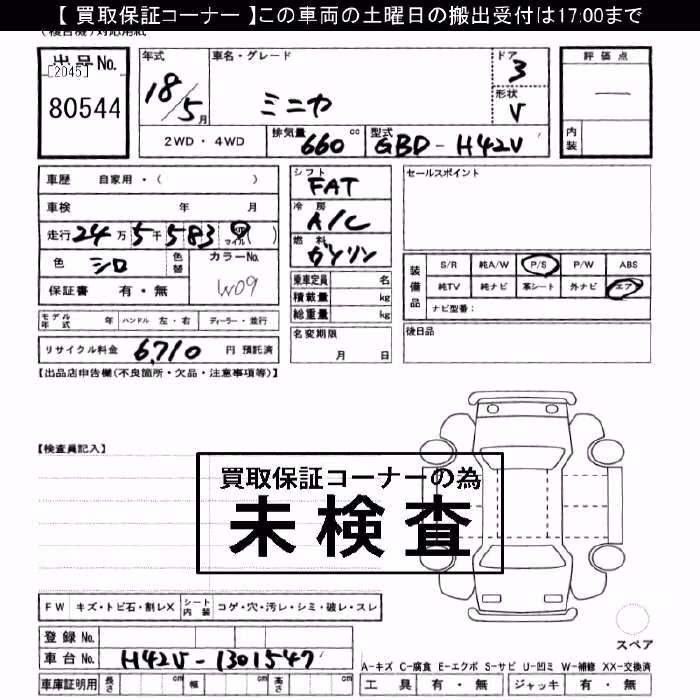 【 買取保証コーナー 】この車両の土曜日の搬出受付は17:00まで
出品No.
[2045]
80544
年式
18/5月
車名・グレード
ミニカ
ドア
3
形状
V
評価点
—
内装
2WD・4WD
排気量 660 cc
型式 GBD-H42V
車歴 自家用・( )
車検 年 月
走行 24万5千583 km マイル ( )
色 シロ
色替
カラーNo.
W09
保証書 有・無
シフト FAT
冷房 A/C
燃料 ガソリン
乗車定員 名
積載量 kg
総重量 kg
セールスポイント
装備品
S/R 純A/W P/S P/W ABS
純TV 純ナビ 革シート 外ナビ エア
ナビ型番:
モデル年式 年 ハンドル 左・右 ディーラー・並行
リサイクル料金 6,710 円 預託済
名変期限
月 日
後日品
【出品店申告欄(不良箇所・欠品・注意事項等)】
【検査員記入】
買取保証コーナーの為
未検査
FW キズ・トビ石・割レX シート内装 コゲ・穴・汚レ・シミ・破レ・スレ
登録No.
車台No. H42V-1301547
スペア
A-キズ C-腐食 E-エクボ S-サビ U-凹ミ W-補修 XX-交換済
車庫証明用 長さ cm 幅 cm 高さ cm
工具 有・無 ジャッキ 有・無